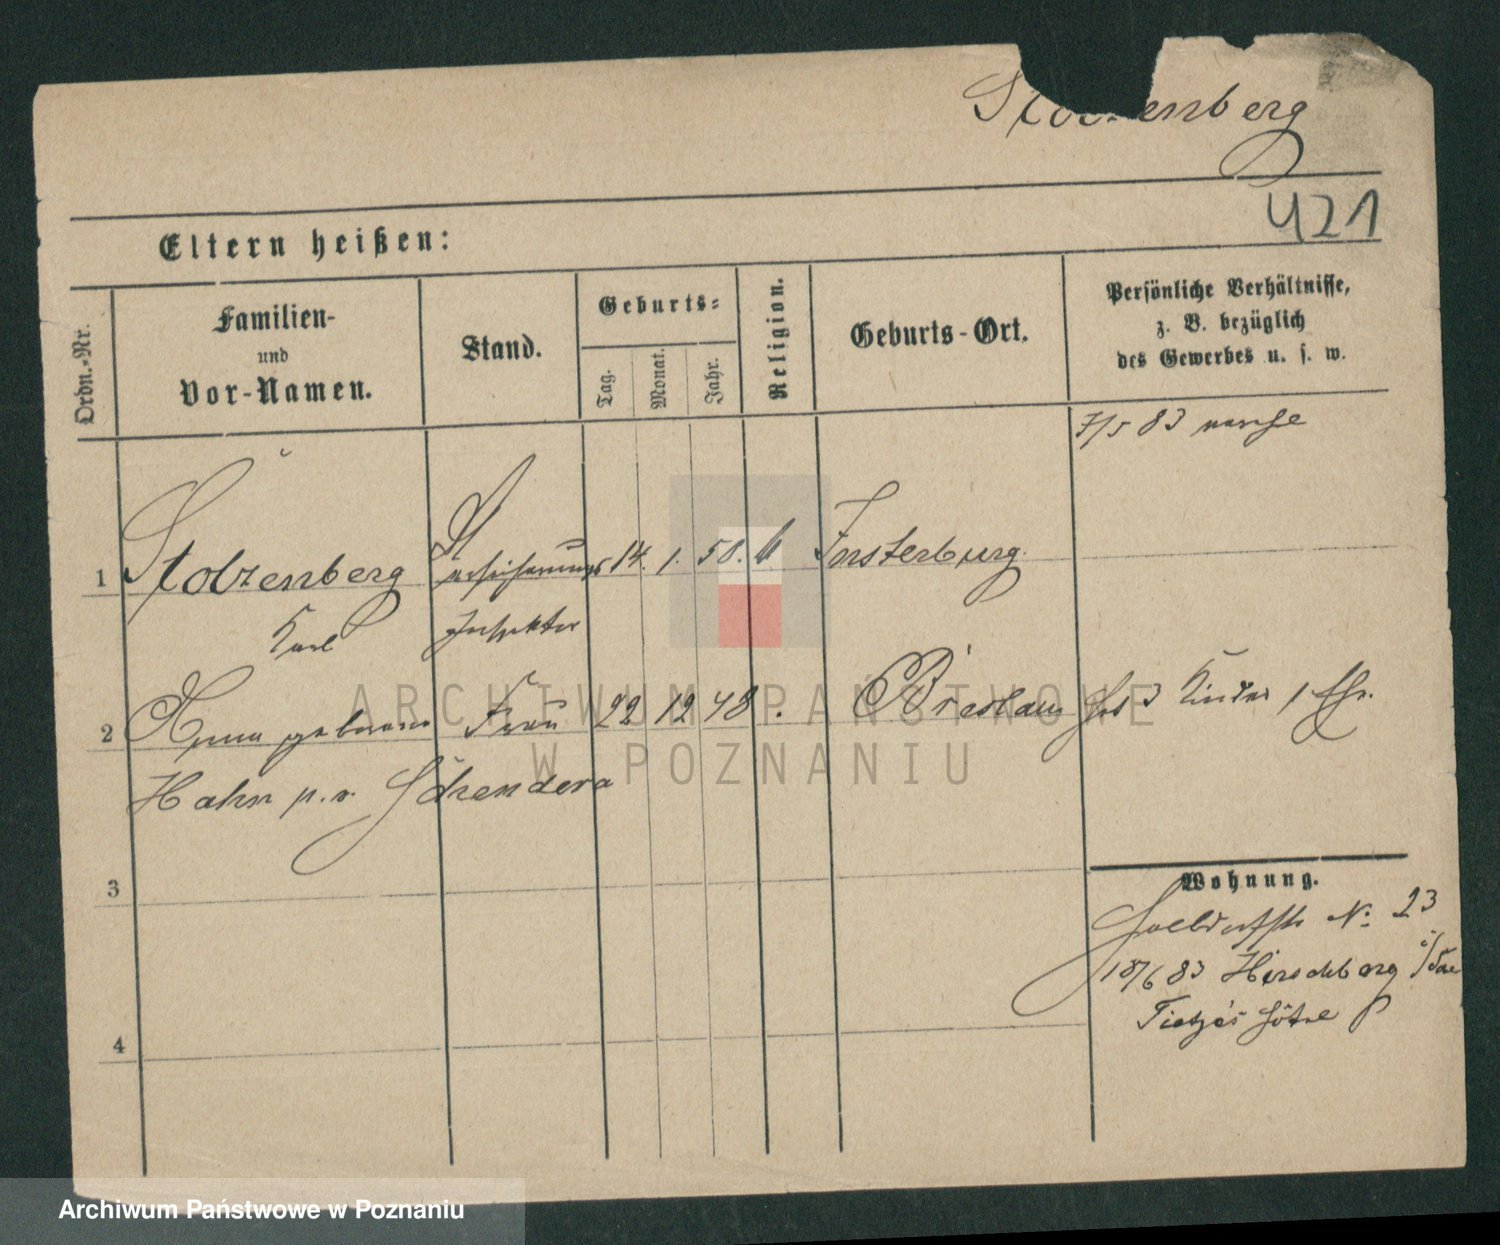 Stolzenberg
421
Eltern heißen:
Ordn.-Nr.
Familien-
und
Vor-Namen.
Stand.
Geburts-
Tag.
Monat.
Jahr.
Religion.
Geburts-Ort.
Persönliche Verhältnisse,
z. B. bezüglich
des Gewerbes u. s. w.
7/5 83
1 Stolzenberg Versicherungs 14. 1. 50. Insterburg
Karl Inspektor
2 Anna geborene Frau 22 12 48 Breslau 3 Kinder 1
Hahn
3
Wohnung.
No 23
18/6 83 Hirschberg
4
ARCHIWUM PAŃSTWOWE
W POZNANIU
Archiwum Państwowe w Poznaniu